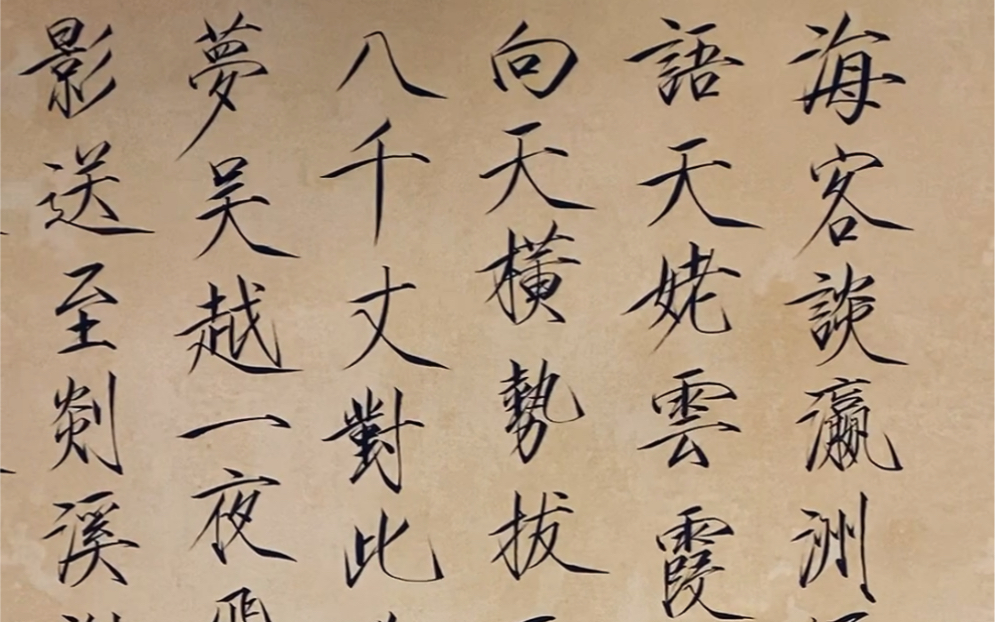 海客談瀛洲
語天姥雲霞
向天橫勢拔
八千丈對此
夢吳越一夜飛
影送至剡溪